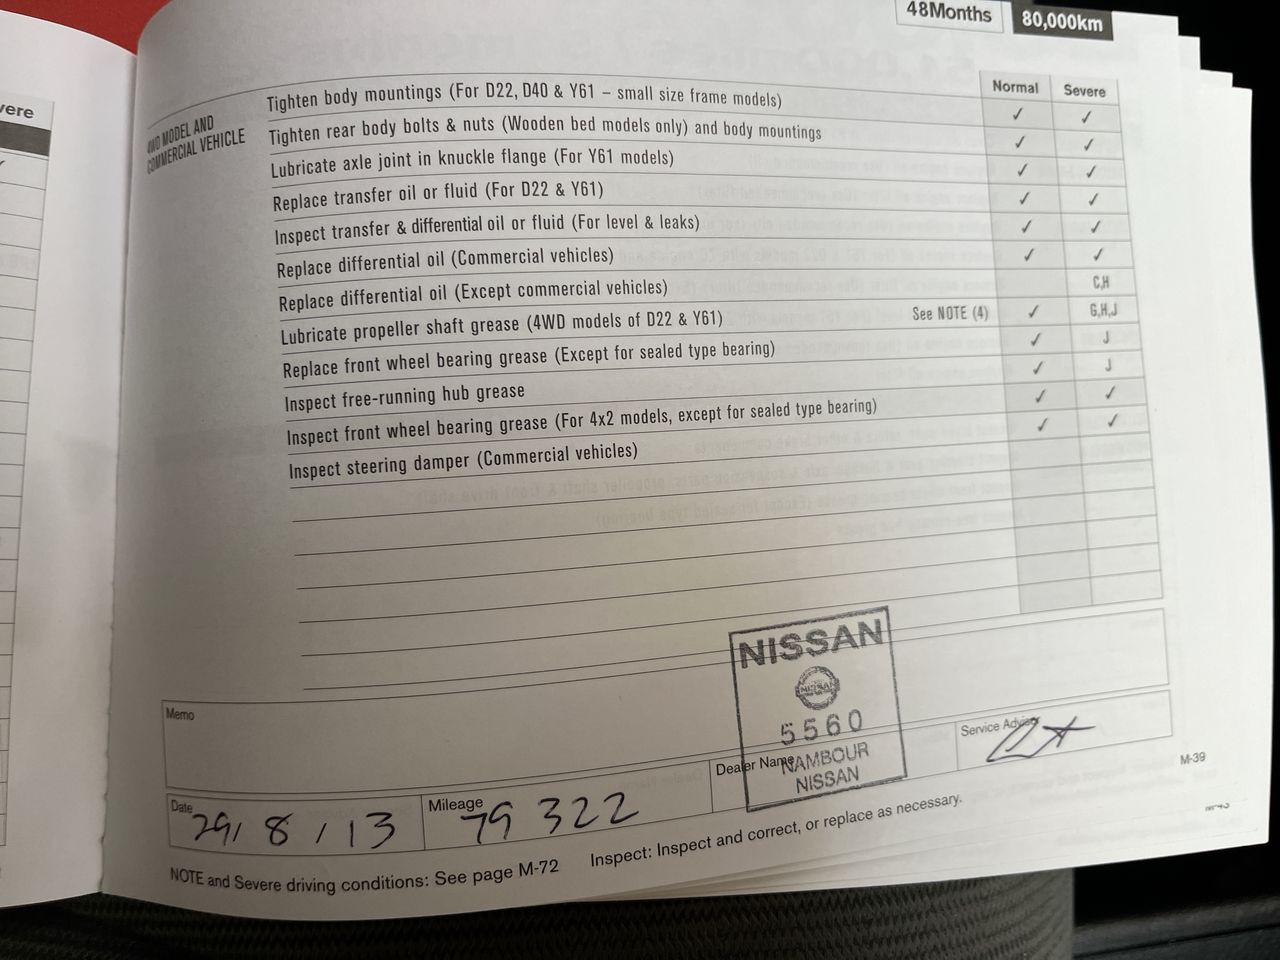 48Months 80,000km
vere
4WD MODEL AND
COMMERCIAL VEHICLE
Normal Severe
Tighten body mountings (For D22, D40 & Y61 – small size frame models) ✓ ✓
Tighten rear body bolts & nuts (Wooden bed models only) and body mountings ✓ ✓
Lubricate axle joint in knuckle flange (For Y61 models) ✓ ✓
Replace transfer oil or fluid (For D22 & Y61) ✓ ✓
Inspect transfer & differential oil or fluid (For level & leaks) ✓ ✓
Replace differential oil (Commercial vehicles) ✓ ✓
Replace differential oil (Except commercial vehicles) C,H
Lubricate propeller shaft grease (4WD models of D22 & Y61) See NOTE (4) ✓ G,H,J
Replace front wheel bearing grease (Except for sealed type bearing) ✓ J
Inspect free-running hub grease ✓ J
Inspect front wheel bearing grease (For 4x2 models, except for sealed type bearing) ✓ ✓
Inspect steering damper (Commercial vehicles) ✓ ✓
Memo
NISSAN
NISSAN
5560
NAMBOUR
NISSAN
Date 29/ 8 / 13
Mileage 79 322
Dealer Name
Service Advisor
M-39
NOTE and Severe driving conditions: See page M-72 Inspect: Inspect and correct, or replace as necessary.